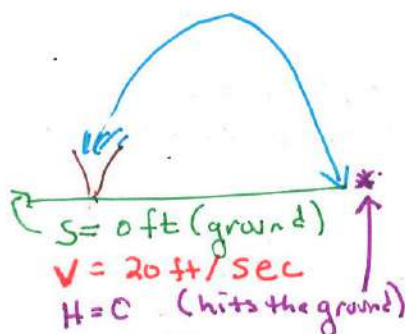 S = 0 ft (ground)
V = 20 ft/sec
H = 0 (hits the ground)